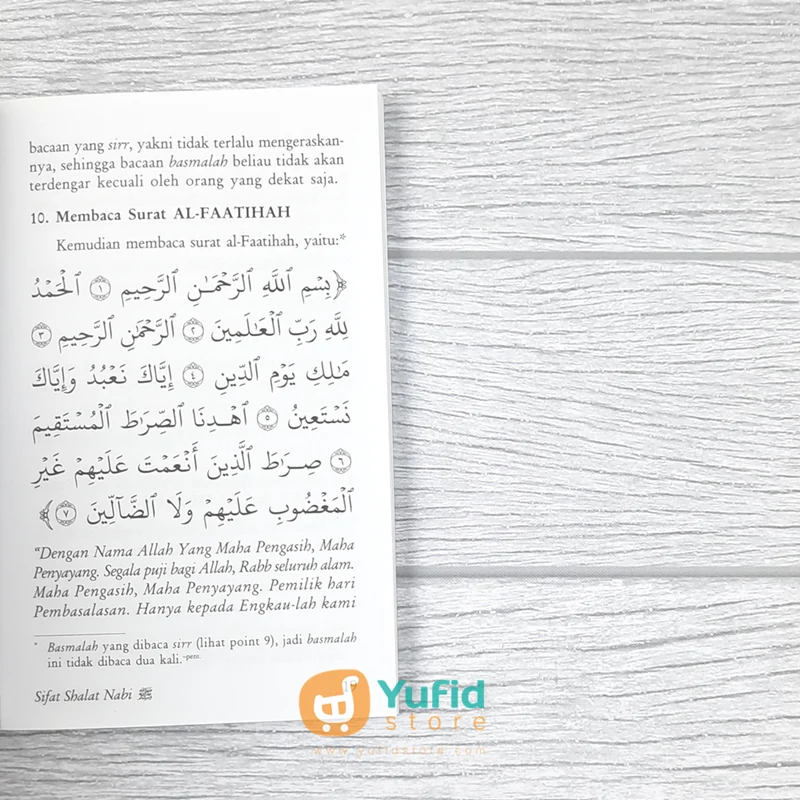 bacaan yang sirr, yakni tidak terlalu mengeraskan-
nya, sehingga bacaan basmalah beliau tidak akan
terdengar kecuali oleh orang yang dekat saja.
10. Membaca Surat AL-FAATIHAH
Kemudian membaca surat al-Faatihah, yaitu:*
﴿بِسْمِ ٱللَّهِ ٱلرَّحْمَـٰنِ ٱلرَّحِيمِ ١ ٱلْحَمْدُ
لِلَّهِ رَبِّ ٱلْعَـٰلَمِينَ ٢ ٱلرَّحْمَـٰنِ ٱلرَّحِيمِ ٣
مَـٰلِكِ يَوْمِ ٱلدِّينِ ٤ إِيَّاكَ نَعْبُدُ وَإِيَّاكَ
نَسْتَعِينُ ٥ ٱهْدِنَا ٱلصِّرَٰطَ ٱلْمُسْتَقِيمَ
٦ صِرَٰطَ ٱلَّذِينَ أَنْعَمْتَ عَلَيْهِمْ غَيْرِ
ٱلْمَغْضُوبِ عَلَيْهِمْ وَلَا ٱلضَّآلِّينَ ٧﴾
“Dengan Nama Allah Yang Maha Pengasih, Maha
Penyayang. Segala puji bagi Allah, Rabb seluruh alam.
Maha Pengasih, Maha Penyayang. Pemilik hari
Pembasalasan. Hanya kepada Engkau-lah kami
* Basmalah yang dibaca sirr (lihat point 9), jadi basmalah
ini tidak dibaca dua kali.-pent.
Sifat Shalat Nabi ﷺ
Yufid
store
www.yufidstore.com